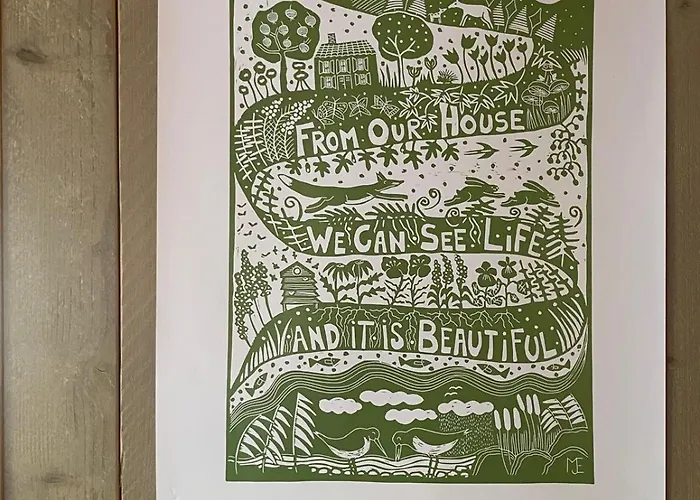 FROM OUR HOUSE
WE CAN SEE LiFE
AND iT iS BEAUTiFUL
ME